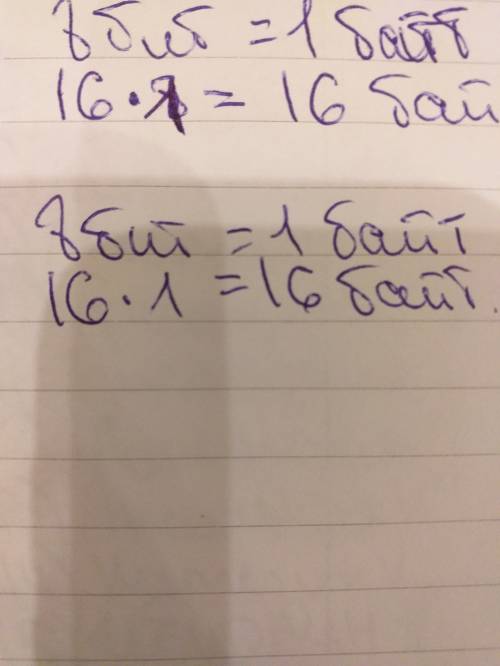 8 бит = 1 байт
16 · 1 = 16 бай
8 бит = 1 байт
16 · 1 = 16 байт.